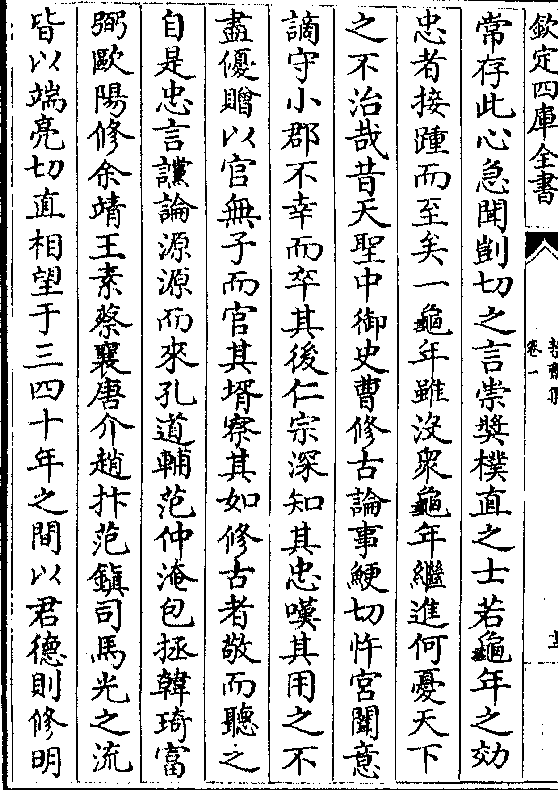 欽定四庫全書
卷一
常存此心急聞剴切之言崇奬樸直之士若龜年之効
忠者接踵而至矣一龜年雖没衆龜年繼進何憂天下
之不治哉昔天聖中御史曹修古論事鯁切忤宮闈意
謫守小郡不幸而卒其後仁宗深知其忠嘆其用之不
盡優贈以官無子而官其壻察其如修古者敬而聽之
自是忠言讜論源源而來孔道輔范仲淹包拯韓琦富
弼歐陽修余靖王素蔡襄唐介趙抃范鎭司馬光之流
皆以端亮切直相望于三四十年之間以君德則修明